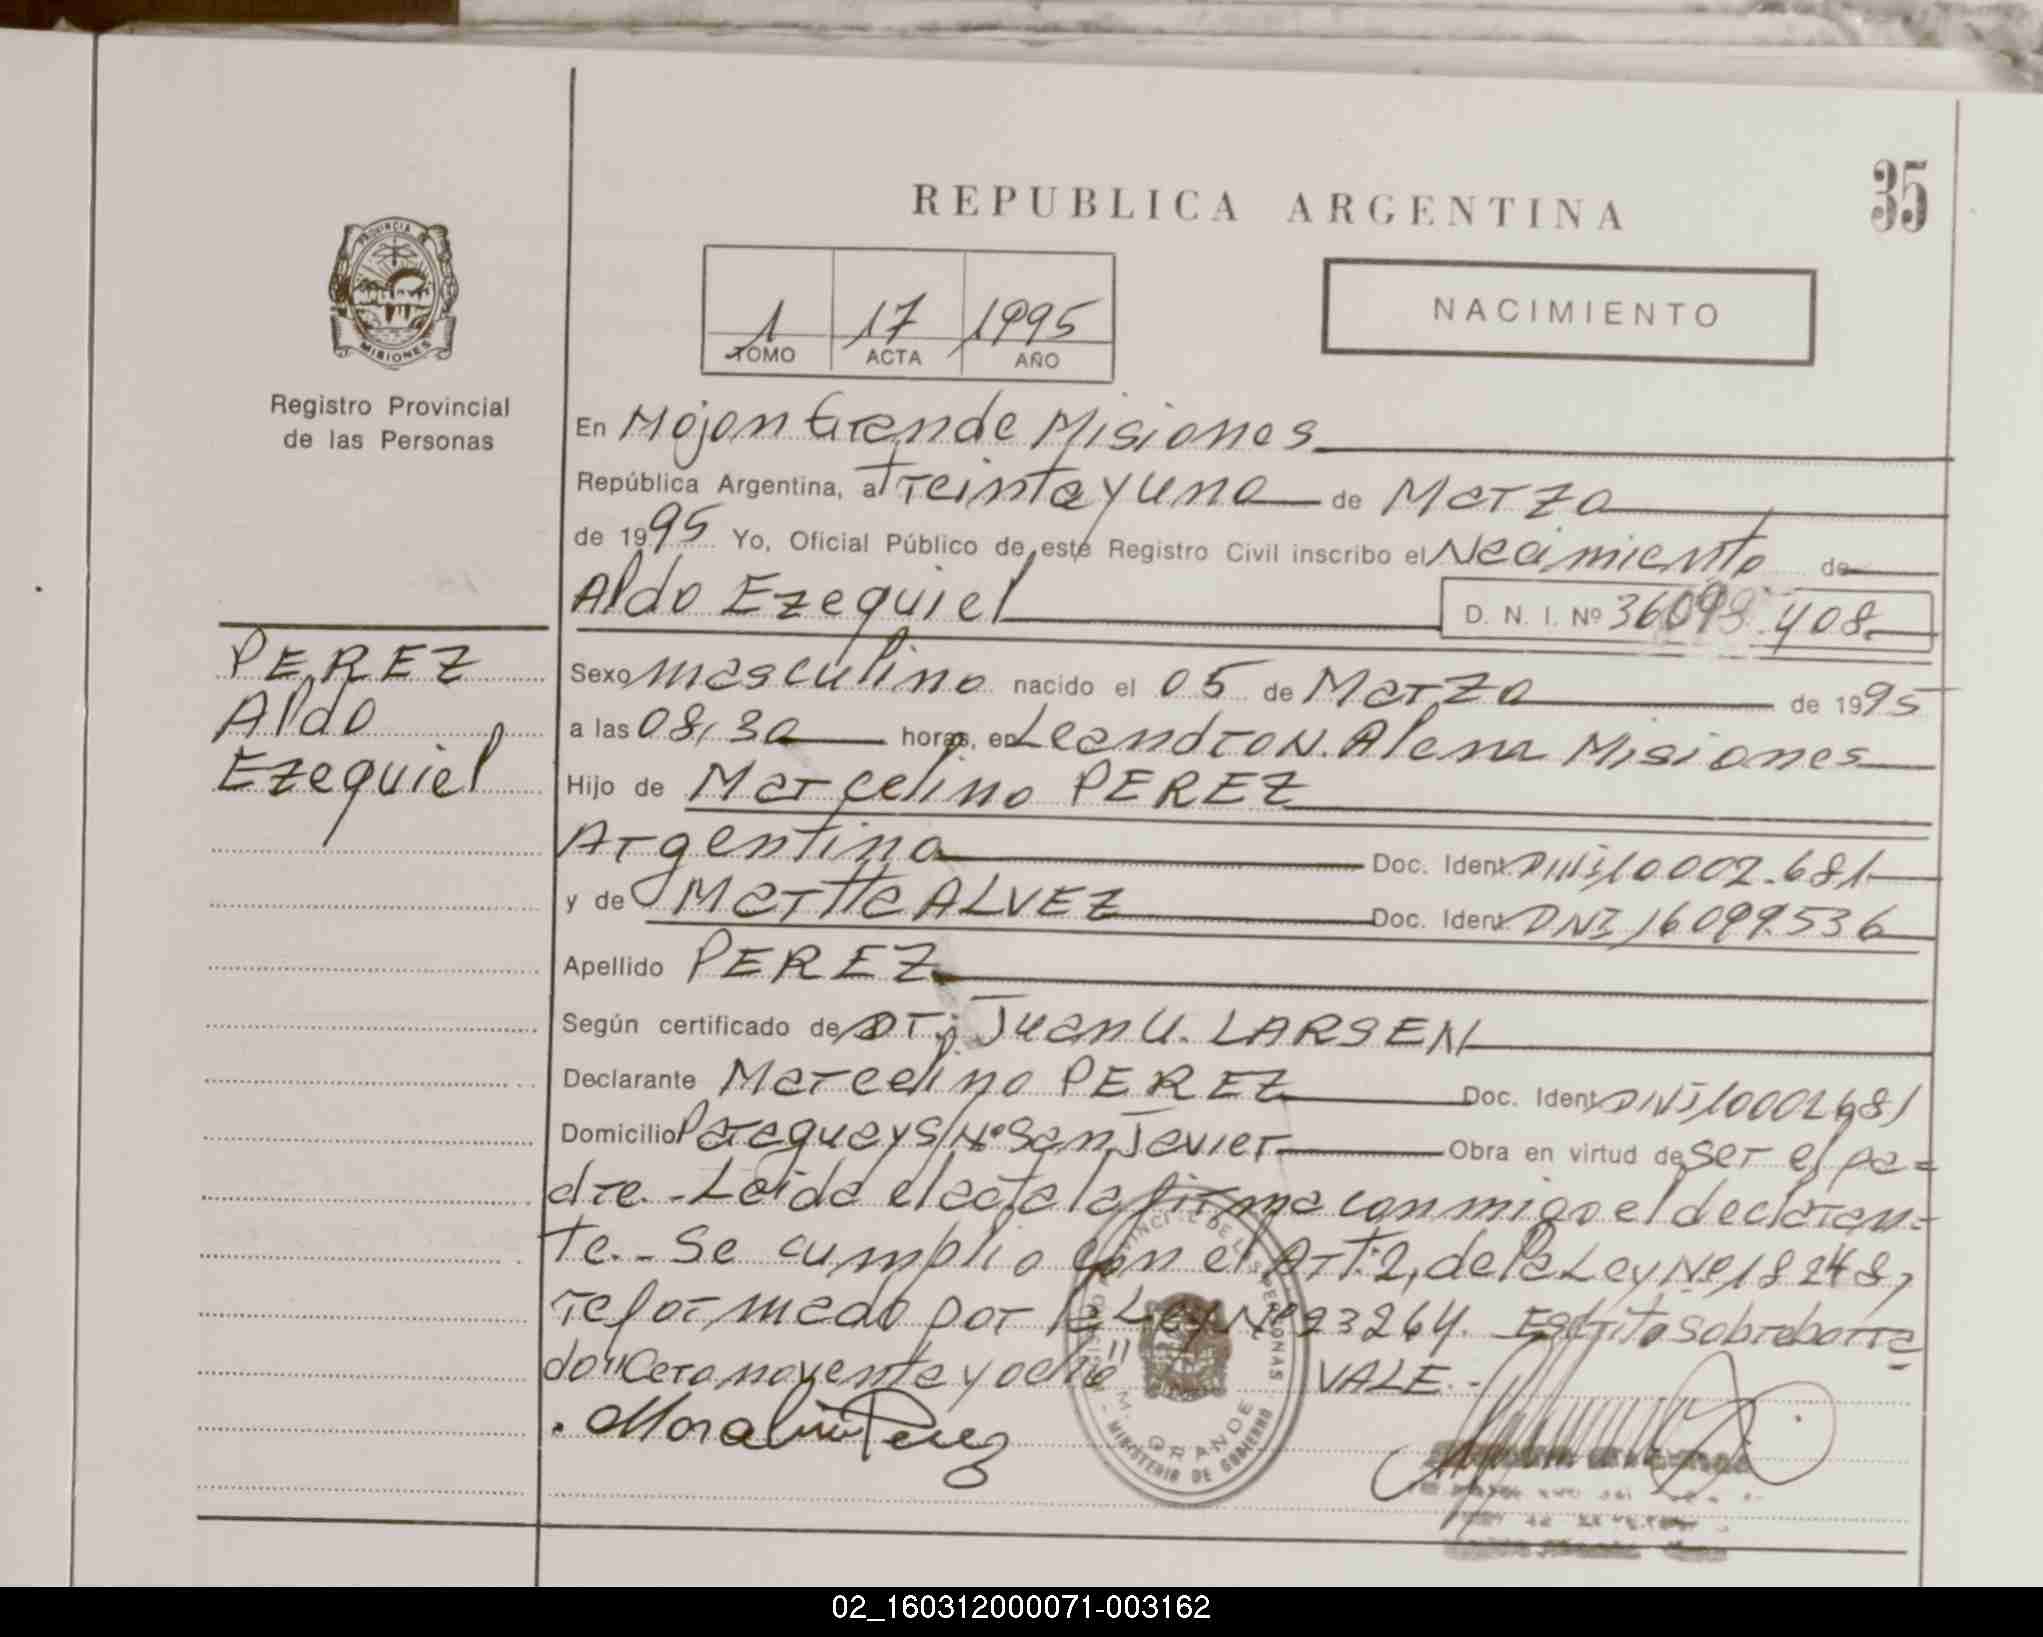 35
REPUBLICA ARGENTINA
PROVINCIA DE
MISIONES
Registro Provincial
de las Personas
1 17 1995
TOMO ACTA AÑO
NACIMIENTO
En Mojon Grande Misiones
República Argentina, a treinta y uno de Marzo
de 1995 Yo, Oficial Público de este Registro Civil inscribo el Nacimiento de
Aldo Ezequiel D. N. I. Nº 36098.408
PEREZ
Aldo
Ezequiel
Sexo masculino nacido el 05 de Marzo de 1995
a las 08,30 horas, en Leandro N. Alem Misiones
Hijo de Marcelino PEREZ
Argentino Doc. Ident. DNI 10002.681
y de Martha ALVEZ Doc. Ident. DNI 16099.536
Apellido PEREZ
Según certificado de Dr; Juan U. LARSEN
Declarante Marcelino PEREZ Doc. Ident. DNI 10002681
Domicilio Paraguay S/Nº San Javier Obra en virtud de ser el pa=
dre.- Leida el acta la firma conmigo el declaran=
te.- Se cumplio con el Art: 2, de la Ley Nº 18248,
reformado por la Ley Nº 23264. Escrito sobreborra
do "Cero noventa y ocho" VALE.-
M. GRANDE
- MINISTERIO DE GOBIERNO
02_160312000071-003162